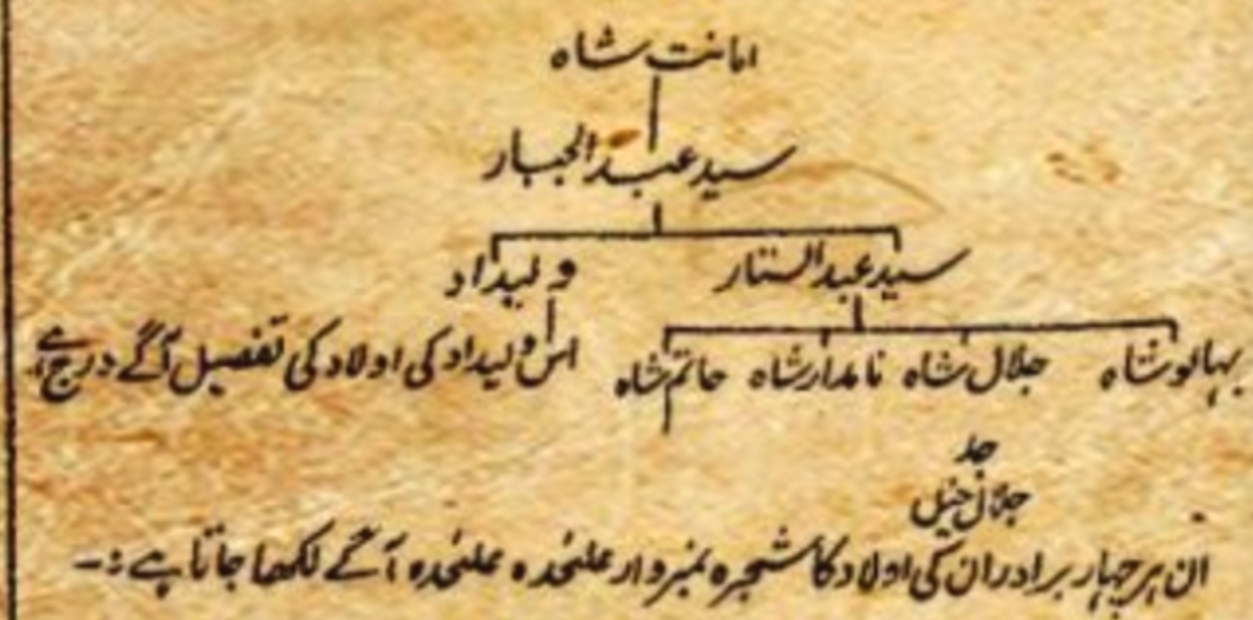 امانت شاہ
سید عبدالجبار
سید عبدالستار ولیداد
بہالوشاہ جلال شاہ نامدارشاہ حاتم شاہ اس ولیداد کی اولاد کی تفصیل آگے درج ہے
جد
جلال خیل
ان ہر چہار برادران کی اولاد کا شجرہ نمبروار علٰیحدہ علٰیحدہ آگے لکھا جاتا ہے :۔